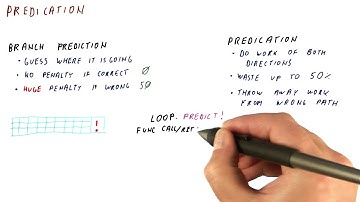 PREDICATION
BRANCH PREDICTION
• GUESS WHERE IT IS GOING
• NO PENALTY IF CORRECT 0
• HUGE PENALTY IF WRONG 50
!
PREDICATION
• DO WORK OF BOTH
DIRECTIONS
• WASTE UP TO 50%
• THROW AWAY WORK
FROM WRONG PATH
LOOP. PREDICT!
FUNC CALL/RET: